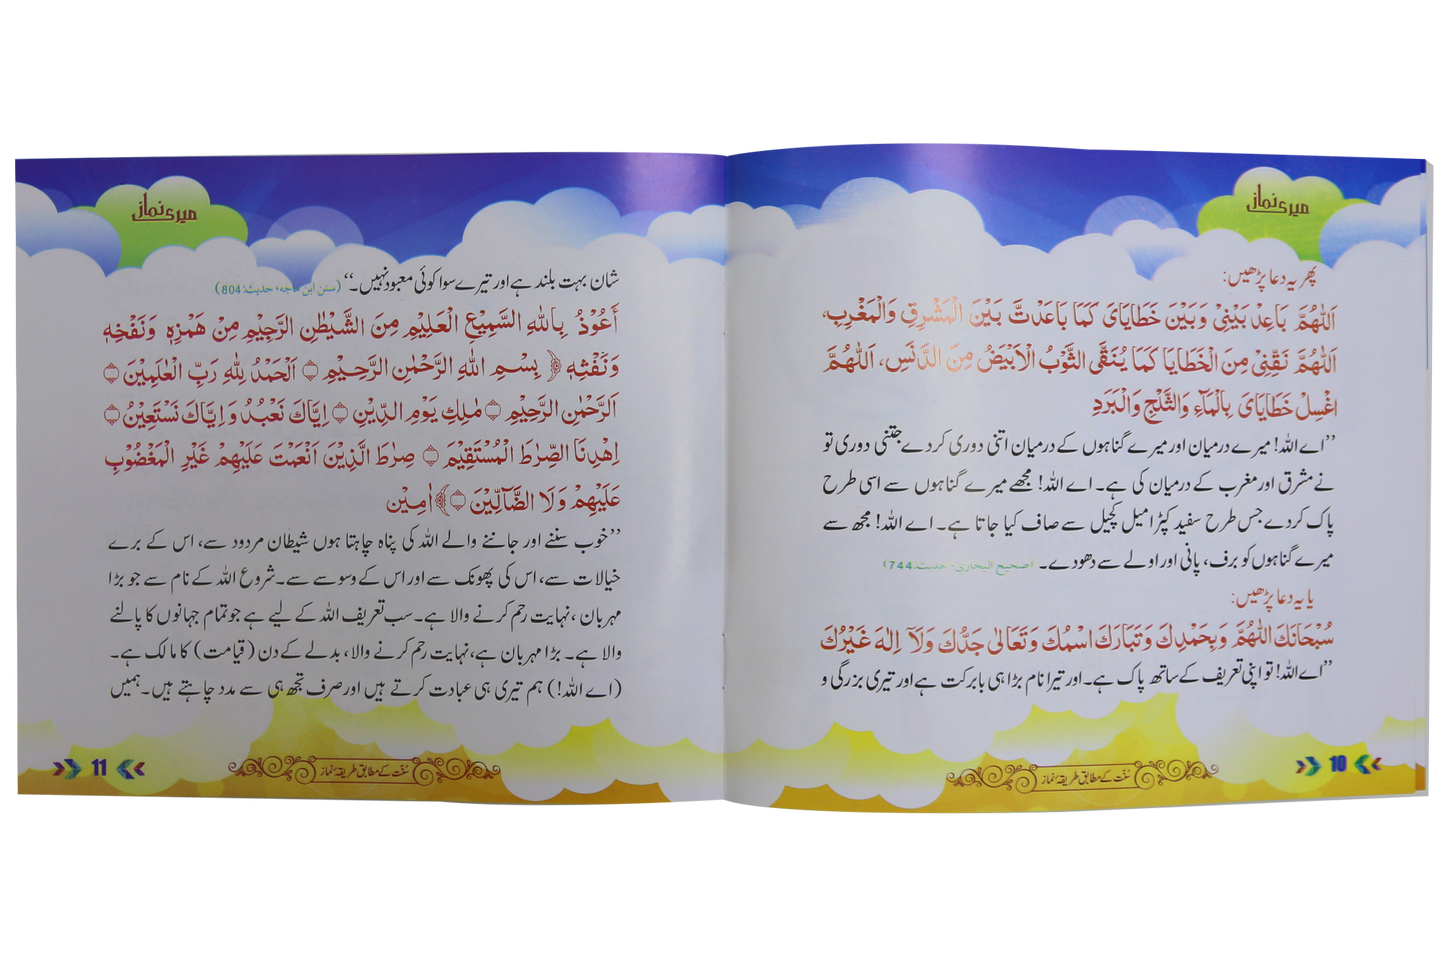 میری نماز
پھر یہ دعا پڑھیں:
اَللّٰهُمَّ بَاعِدْ بَيْنِيْ وَبَيْنَ خَطَايَايَ كَمَا بَاعَدْتَّ بَيْنَ الْمَشْرِقِ وَالْمَغْرِبِ،
اَللّٰهُمَّ نَقِّنِيْ مِنَ الْخَطَايَا كَمَا يُنَقَّى الثَّوْبُ الْاَبْيَضُ مِنَ الدَّنَسِ، اَللّٰهُمَّ
اغْسِلْ خَطَايَايَ بِالْمَآءِ وَالثَّلْجِ وَالْبَرَدِ
’’اے اللہ! میرے درمیان اور میرے گناہوں کے درمیان اتنی دوری کر دے جتنی دوری تو
نے مشرق اور مغرب کے درمیان کی ہے۔ اے اللہ! مجھے میرے گناہوں سے اسی طرح
پاک کر دے جس طرح سفید کپڑا میل کچیل سے صاف کیا جاتا ہے۔ اے اللہ! مجھ سے
میرے گناہوں کو برف، پانی اور اولے سے دھو دے۔ (صحیح البخاری، حدیث: 744)
یا یہ دعا پڑھیں:
سُبْحَانَكَ اللّٰهُمَّ وَبِحَمْدِكَ وَتَبَارَكَ اسْمُكَ وَتَعَالٰى جَدُّكَ وَلَآ اِلٰهَ غَيْرُكَ
’’اے اللہ! تو اپنی تعریف کے ساتھ پاک ہے۔ اور تیرا نام بڑا ہی بابرکت ہے اور تیری بزرگی و
سنّت کے مطابق طریقۂ نماز
10
میری نماز
شان بہت بلند ہے اور تیرے سوا کوئی معبود نہیں۔‘‘ (سنن ابن ماجه، حدیث: 804)
أَعُوْذُ بِاللهِ السَّمِيْعِ الْعَلِيْمِ مِنَ الشَّيْطٰنِ الرَّجِيْمِ مِنْ هَمْزِهٖ وَنَفْخِهٖ
وَنَفْثِهٖ ﴿ بِسْمِ اللهِ الرَّحْمٰنِ الرَّحِيْمِ ۝ اَلْحَمْدُ لِلّٰهِ رَبِّ الْعٰلَمِيْنَ ۝
الرَّحْمٰنِ الرَّحِيْمِ ۝ مٰلِكِ يَوْمِ الدِّيْنِ ۝ اِيَّاكَ نَعْبُدُ وَاِيَّاكَ نَسْتَعِيْنُ ۝
اِهْدِنَا الصِّرٰطَ الْمُسْتَقِيْمَ ۝ صِرٰطَ الَّذِيْنَ اَنْعَمْتَ عَلَيْهِمْ غَيْرِ الْمَغْضُوْبِ
عَلَيْهِمْ وَلَا الضَّآلِّيْنَ ۝ ﴾ اٰمِيْن
’’خوب سننے اور جاننے والے اللہ کی پناہ چاہتا ہوں شیطان مردود سے، اس کے برے
خیالات سے، اس کی پھونک سے اور اس کے وسوسے سے۔ شروع اللہ کے نام سے جو بڑا
مہربان، نہایت رحم کرنے والا ہے۔ سب تعریف اللہ کے لیے ہے جو تمام جہانوں کا پالنے
والا ہے۔ بڑا مہربان ہے، نہایت رحم کرنے والا، بدلے کے دن (قیامت) کا مالک ہے۔
(اے اللہ!) ہم تیری ہی عبادت کرتے ہیں اور صرف تجھ ہی سے مدد چاہتے ہیں۔ ہمیں
سنّت کے مطابق طریقۂ نماز
11